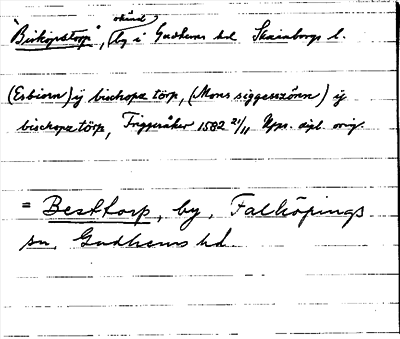 okänd
"Biskopstorp", by i Gudhems hd Skaraborgs l.
(Esbiorn) ij bischopa törp, (Mons siggesszönn) ij
bischopa törp, Friggeråker 1582 21/11 Upps. dipl. orig.
= Besttorp, by, Falköpings
sn, Gudhems hd